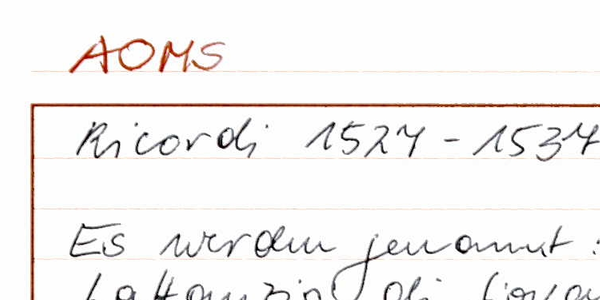 AOMS
Ricordi 1527 - 1534
Es werden genannt:
Lattanzio di Giovan